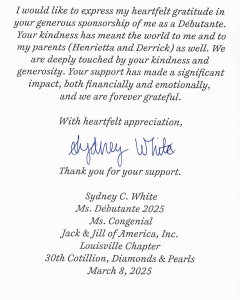 I would like to express my heartfelt gratitude in
your generous sponsorship of me as a Débutante.
Your kindness has meant the world to me and to
my parents (Henrietta and Derrick) as well. We
are deeply touched by your kindness and
generosity. Your support has made a significant
impact, both financially and emotionally,
and we are forever grateful.
With heartfelt appreciation,
Sydney White
Thank you for your support.
Sydney C. White
Ms. Débutante 2025
Ms. Congenial
Jack & Jill of America, Inc.
Louisville Chapter
30th Cotillion, Diamonds & Pearls
March 8, 2025